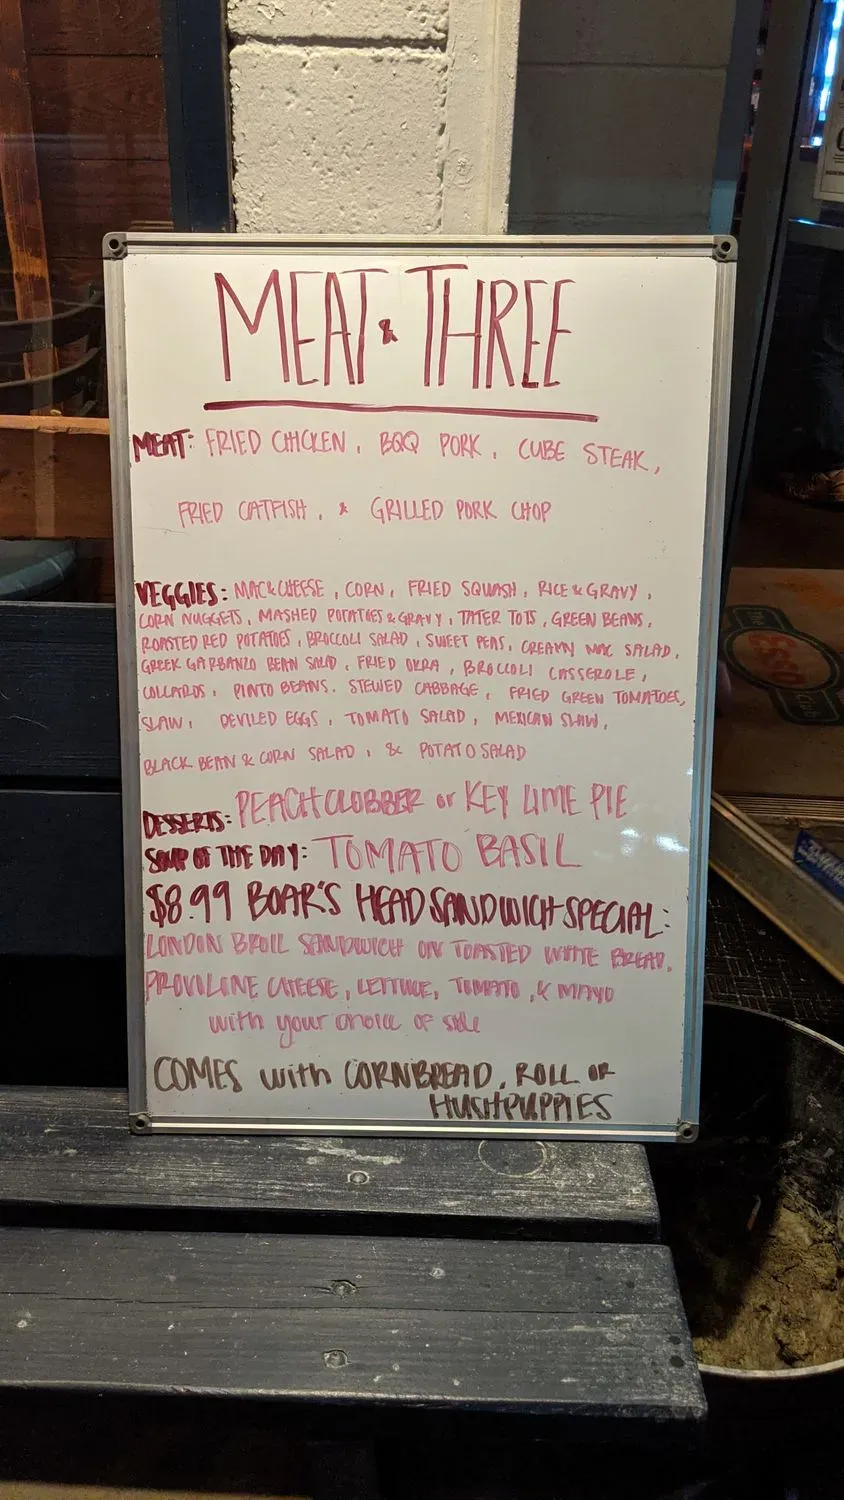 MEAT & THREE
MEAT: FRIED CHICKEN, BBQ PORK, CUBE STEAK,
FRIED CATFISH, & GRILLED PORK CHOP
VEGGIES: MAC & CHEESE, CORN, FRIED SQUASH, RICE & GRAVY,
CORN NUGGETS, MASHED POTATOES & GRAVY, TATER TOTS, GREEN BEANS,
ROASTED RED POTATOES, BROCCOLI SALAD, SWEET PEAS, CREAMY MAC SALAD,
GREEK GARBANZO BEAN SALAD, FRIED OKRA, BROCCOLI CASSEROLE,
COLLARDS, PINTO BEANS, STEWED CABBAGE, FRIED GREEN TOMATOES,
SLAW, DEVILED EGGS, TOMATO SALAD, MEXICAN SLAW,
BLACK BEAN & CORN SALAD, & POTATO SALAD
DESSERTS: PEACH CLOBBER or KEY LIME PIE
SOUP OF THE DAY: TOMATO BASIL
$8.99 BOAR'S HEAD SANDWICH SPECIAL:
LONDON BROIL SANDWICH ON TOASTED WHITE BREAD,
PROVOLONE CHEESE, LETTUCE, TOMATO, & MAYO
with your choice of side
COMES with CORNBREAD, ROLL OR
HUSHPUPPIES
The
Esso
Club